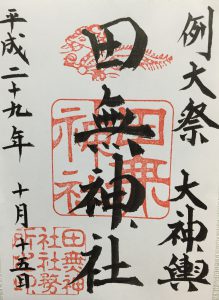 例大祭 大神輿
田無神社
平成二十九年 十月十五日
田無神社
田無神社社務所之印